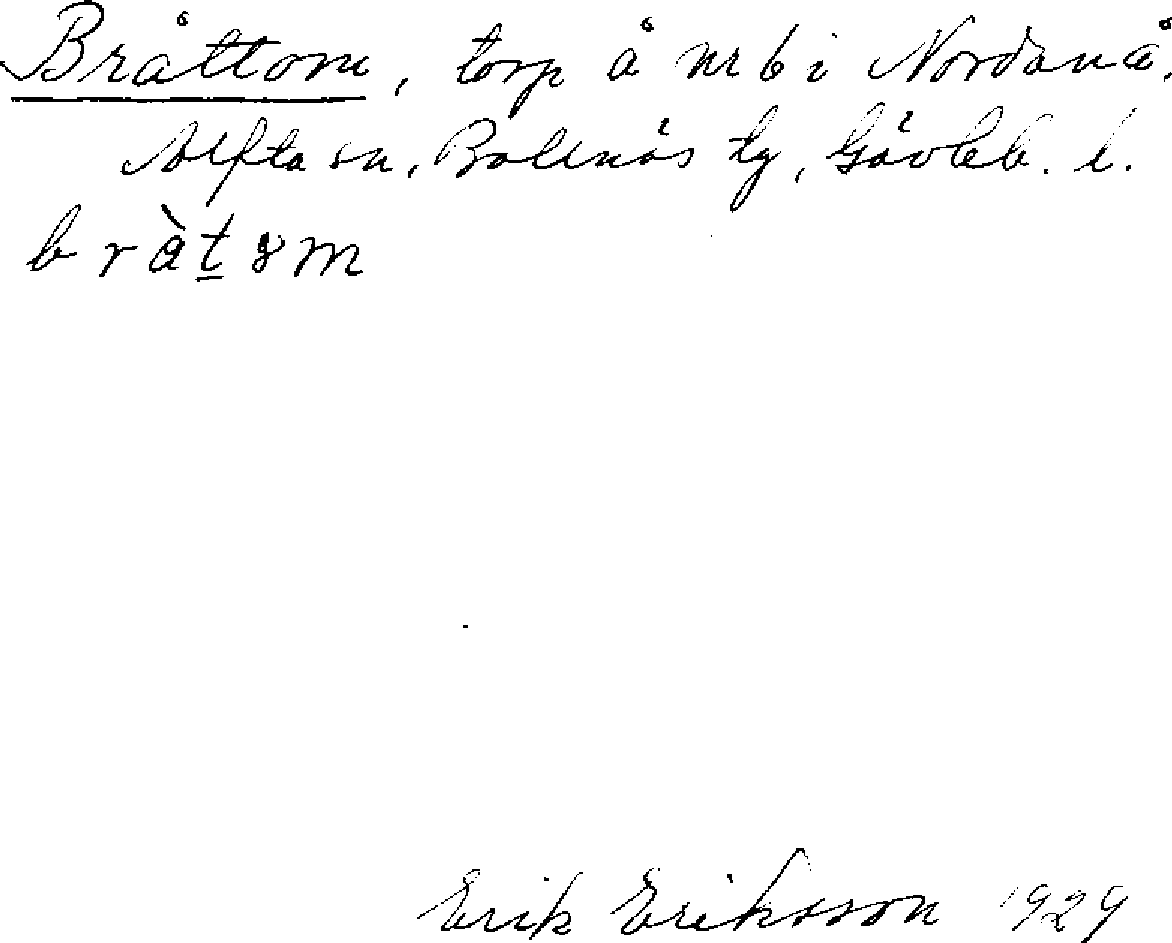 Bråttom, torp å nr 6 i Nordanå,
Alfta sn, Bollnäs tg, Gävleb. l.
bràt̲ 8m
Erik Eriksson 1929